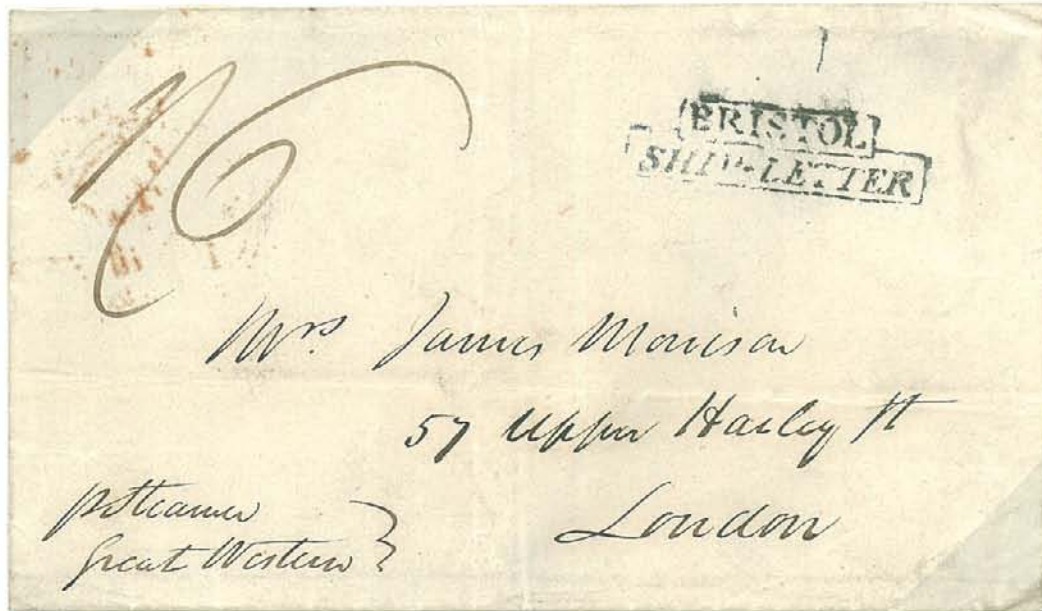 1/6
BRISTOL
SHIP-LETTER
Mrs. James Morrison
57 Upper Harley St
London
p Steamer
Great Western